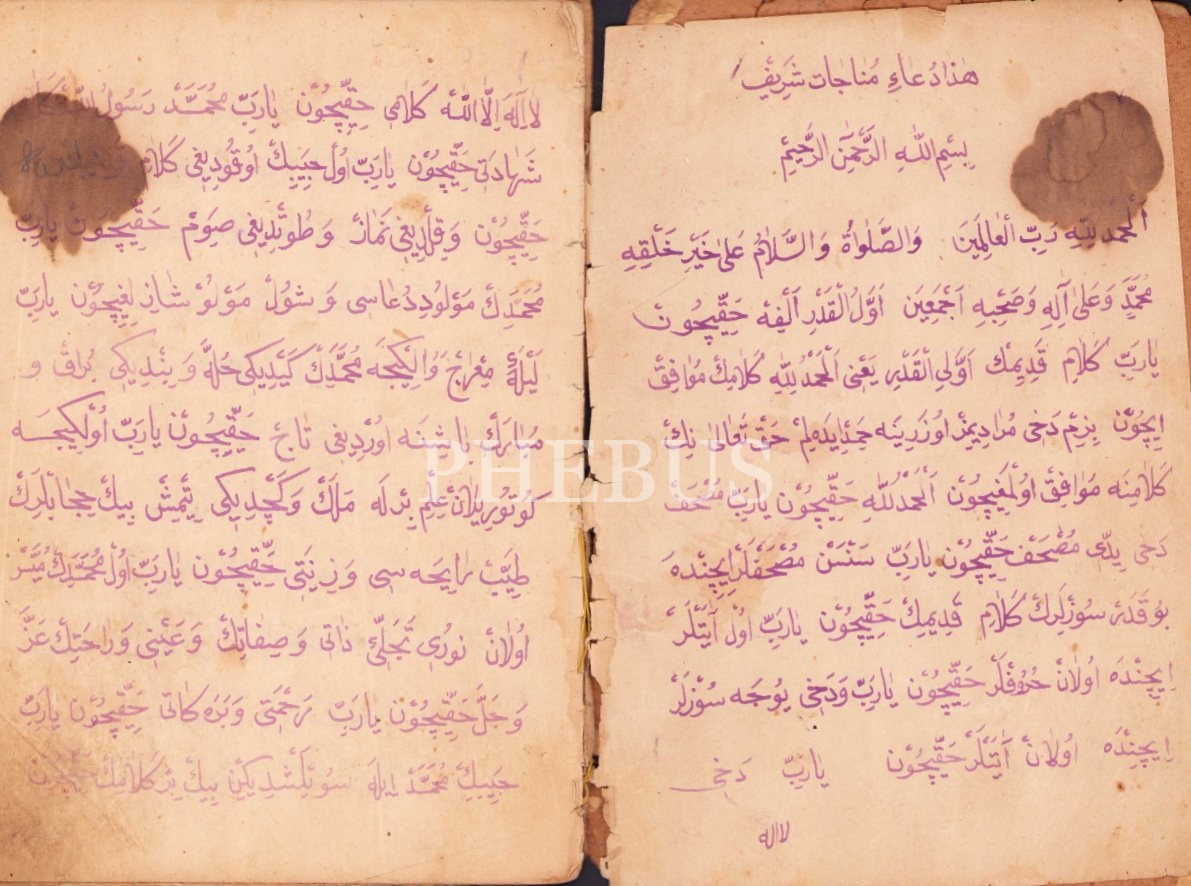 هذا دُعَاءِ مُنَاجَات شَرِيفْ
بِسْمِ اللّٰهِ الرَّحْمٰنِ الرَّحِيمِ
اَلْحَمْدُ لِلّٰهِ رَبِّ الْعَالَمِينَ وَالصَّلٰوةُ وَالسَّلَامُ عَلٰى خَيْرِ خَلْقِهِ
مُحَمَّدٍ وَعَلٰى اٰلِهِ وَصَحْبِهِ اَجْمَعِينَ اَوَّلُ الْقَدْرِ اَلِفِهْ حَقِّيچُونْ
يَارَبِّ كَلَامِ قَدِيمِكْ اَوَّلِ الْقَدْرِ يَعْنِى اَلْحَمْدُ لِلّٰهِ كَلَامِكْ مُوَافِقْ
اِيچُونْ بِزِمْ دَخِى مُرَادِيمِزْ اُوزَرِينَه حَمْدْ اِيدَه لِمْ حَقْ تَعَالٰى نِكْ
كَلَامِنَه مُوَافِقْ اُولْمَغِيچُونْ اَلْحَمْدُ لِلّٰهِ حَقِّيچُونْ يَارَبِّ مُصْحَفْ
دَخِى يِدِّى مُصْحَفْ حَقِّيچُونْ يَارَبِّ سَنْسَنْ مُصْحَفْلَرْ اِيچِنْدَه
بُو قَدَرْ سُوزْلَرِكْ كَلَامِ قَدِيمِكْ حَقِّيچُونْ يَارَبِّ اُولْ اٰيَتْلَرْ
اِيچِنْدَه اُولَانْ حُرُوفْلَرْ حَقِّيچُونْ يَارَبِّ وَدَخِى يُوجَه سُوزْلَرْ
اِيچِنْدَه اُولَانْ اٰيَتْلَرْ حَقِّيچُونْ يَارَبِّ دَخِى
لااله
لَا اِلٰهَ اِلَّا اللّٰهْ كَلَامِى حَقِّيچُونْ يَارَبِّ مُحَمَّدْ رَسُولُ اللّٰهْ
شَهَادَتِى حَقِّيچُونْ يَارَبِّ اُولْ حَبِيبِكْ اُوقُودِيغِى كَلَامِ
حَقِّيچُونْ وَقِلْدِيغِى نَمَازْ وَطُوتْدِيغِى صَوْمْ حَقِّيچُونْ يَارَبِّ
مُحَمَّدِكْ مَوْلُودْ دُعَاسِى وَشُولْ مَوْلُودْ حَقِّيچُونْ يَارَبِّ
لَيْلَةُ مِعْرَاجْ وَاُلْكِيجَه مُحَمَّدِكْ كَيْدِيكِى حُلَّه وَبِنْدِيكِى بُرَاقْ و
مُبَارَكْ بَاشِنَه اُورْدِيغِى تَاجْ حَقِّيچُونْ يَارَبِّ اُولْكِيجَه
كُوتُورِيلَانْ عِلْمِ بِرْلَه مَلَكْ وَكَچْدِيكِى يَتْمِشْ بِيكْ حِجَابْلَرِكْ
طِيبْ رَايِحَه سِى وَزِينَتِى حَقِّيچُونْ يَارَبِّ اُولْ مُحَمَّدِكْ مُيَسَّرْ
اُولَانْ نُورِى تَجَلِّى ذَاتِى وَصِفَاتِكْ وَعَيْنِى وَرَاحَتِكْ عَزَّ
وَجَلَّ حَقِّيچُونْ يَارَبِّ رَحْمَتِى وَبَرَكَاتِى حَقِّيچُونْ يَارَبِّ
حَبِيبِكْ مُحَمَّدْ اِيلَه سُويْلَشْدِيكِينْ بِيكْ بِرْ كَلَامِكْ حَقِّيچُونْ
PHEBUS